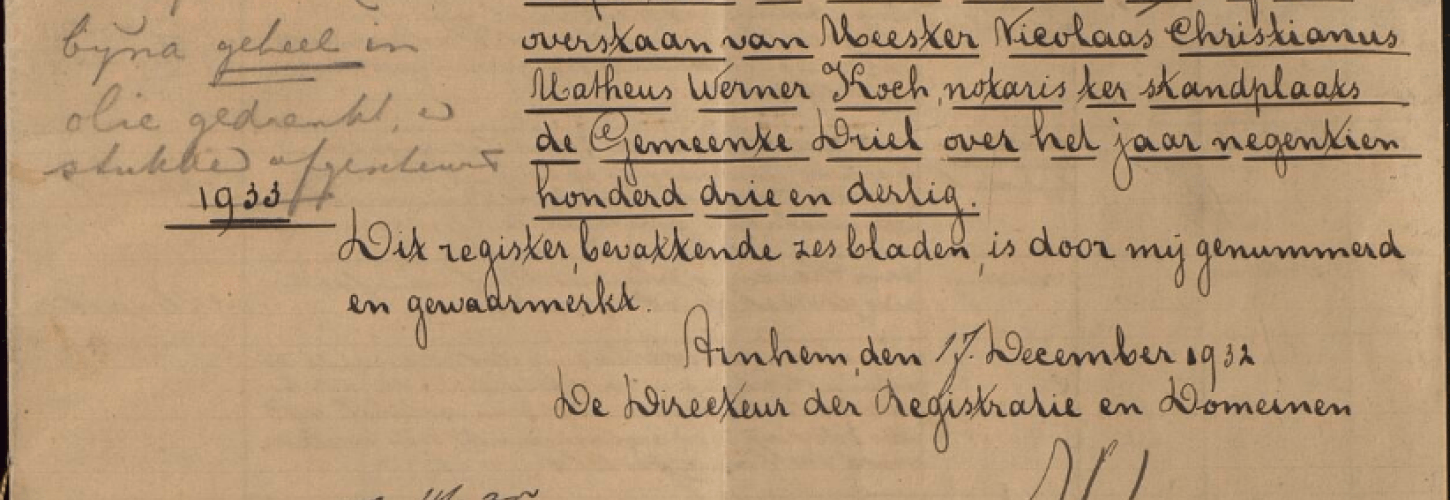 bijna geheel in
olie gedrenkt, e
stukken afgescheurd
1933
overstaan van Meester Nicolaas Christianus
Matheus Werner Koch, notaris ter standplaats
de Gemeente Driel over het jaar negentien
honderd drie en dertig.
Dit register, bevattende zes bladen, is door mij genummerd
en gewaarmerkt.
Arnhem, den 17. December 1932
De Directeur der Registratie en Domeinen